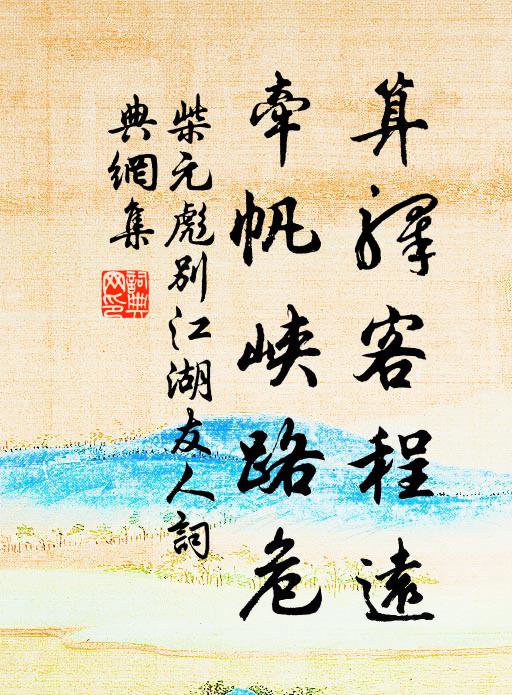 算驛客程遠
牽帆峽路危
柴元彪別江湖友人詞
典網集
詞典網印